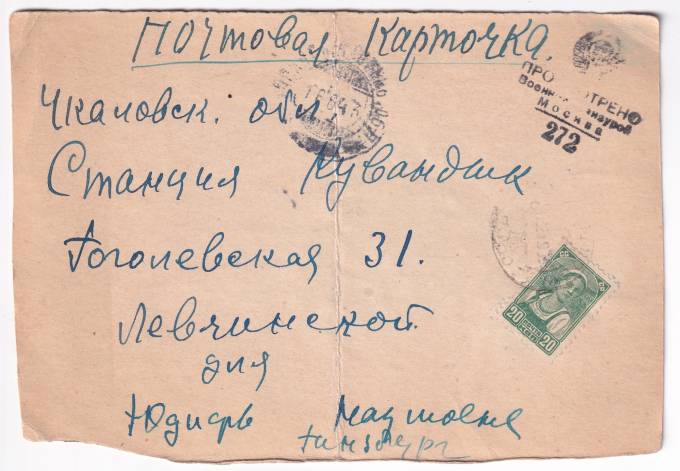 Почтовая Карточка.
ПРОСМОТРЕНО
Военной Цензурой
Москва
272
Чкаловск. обл.
Станция Кувандык
Гоголевская 31.
Левчинской
для
Юдифь
Гинзбург
20 ПОЧТА СССР 20